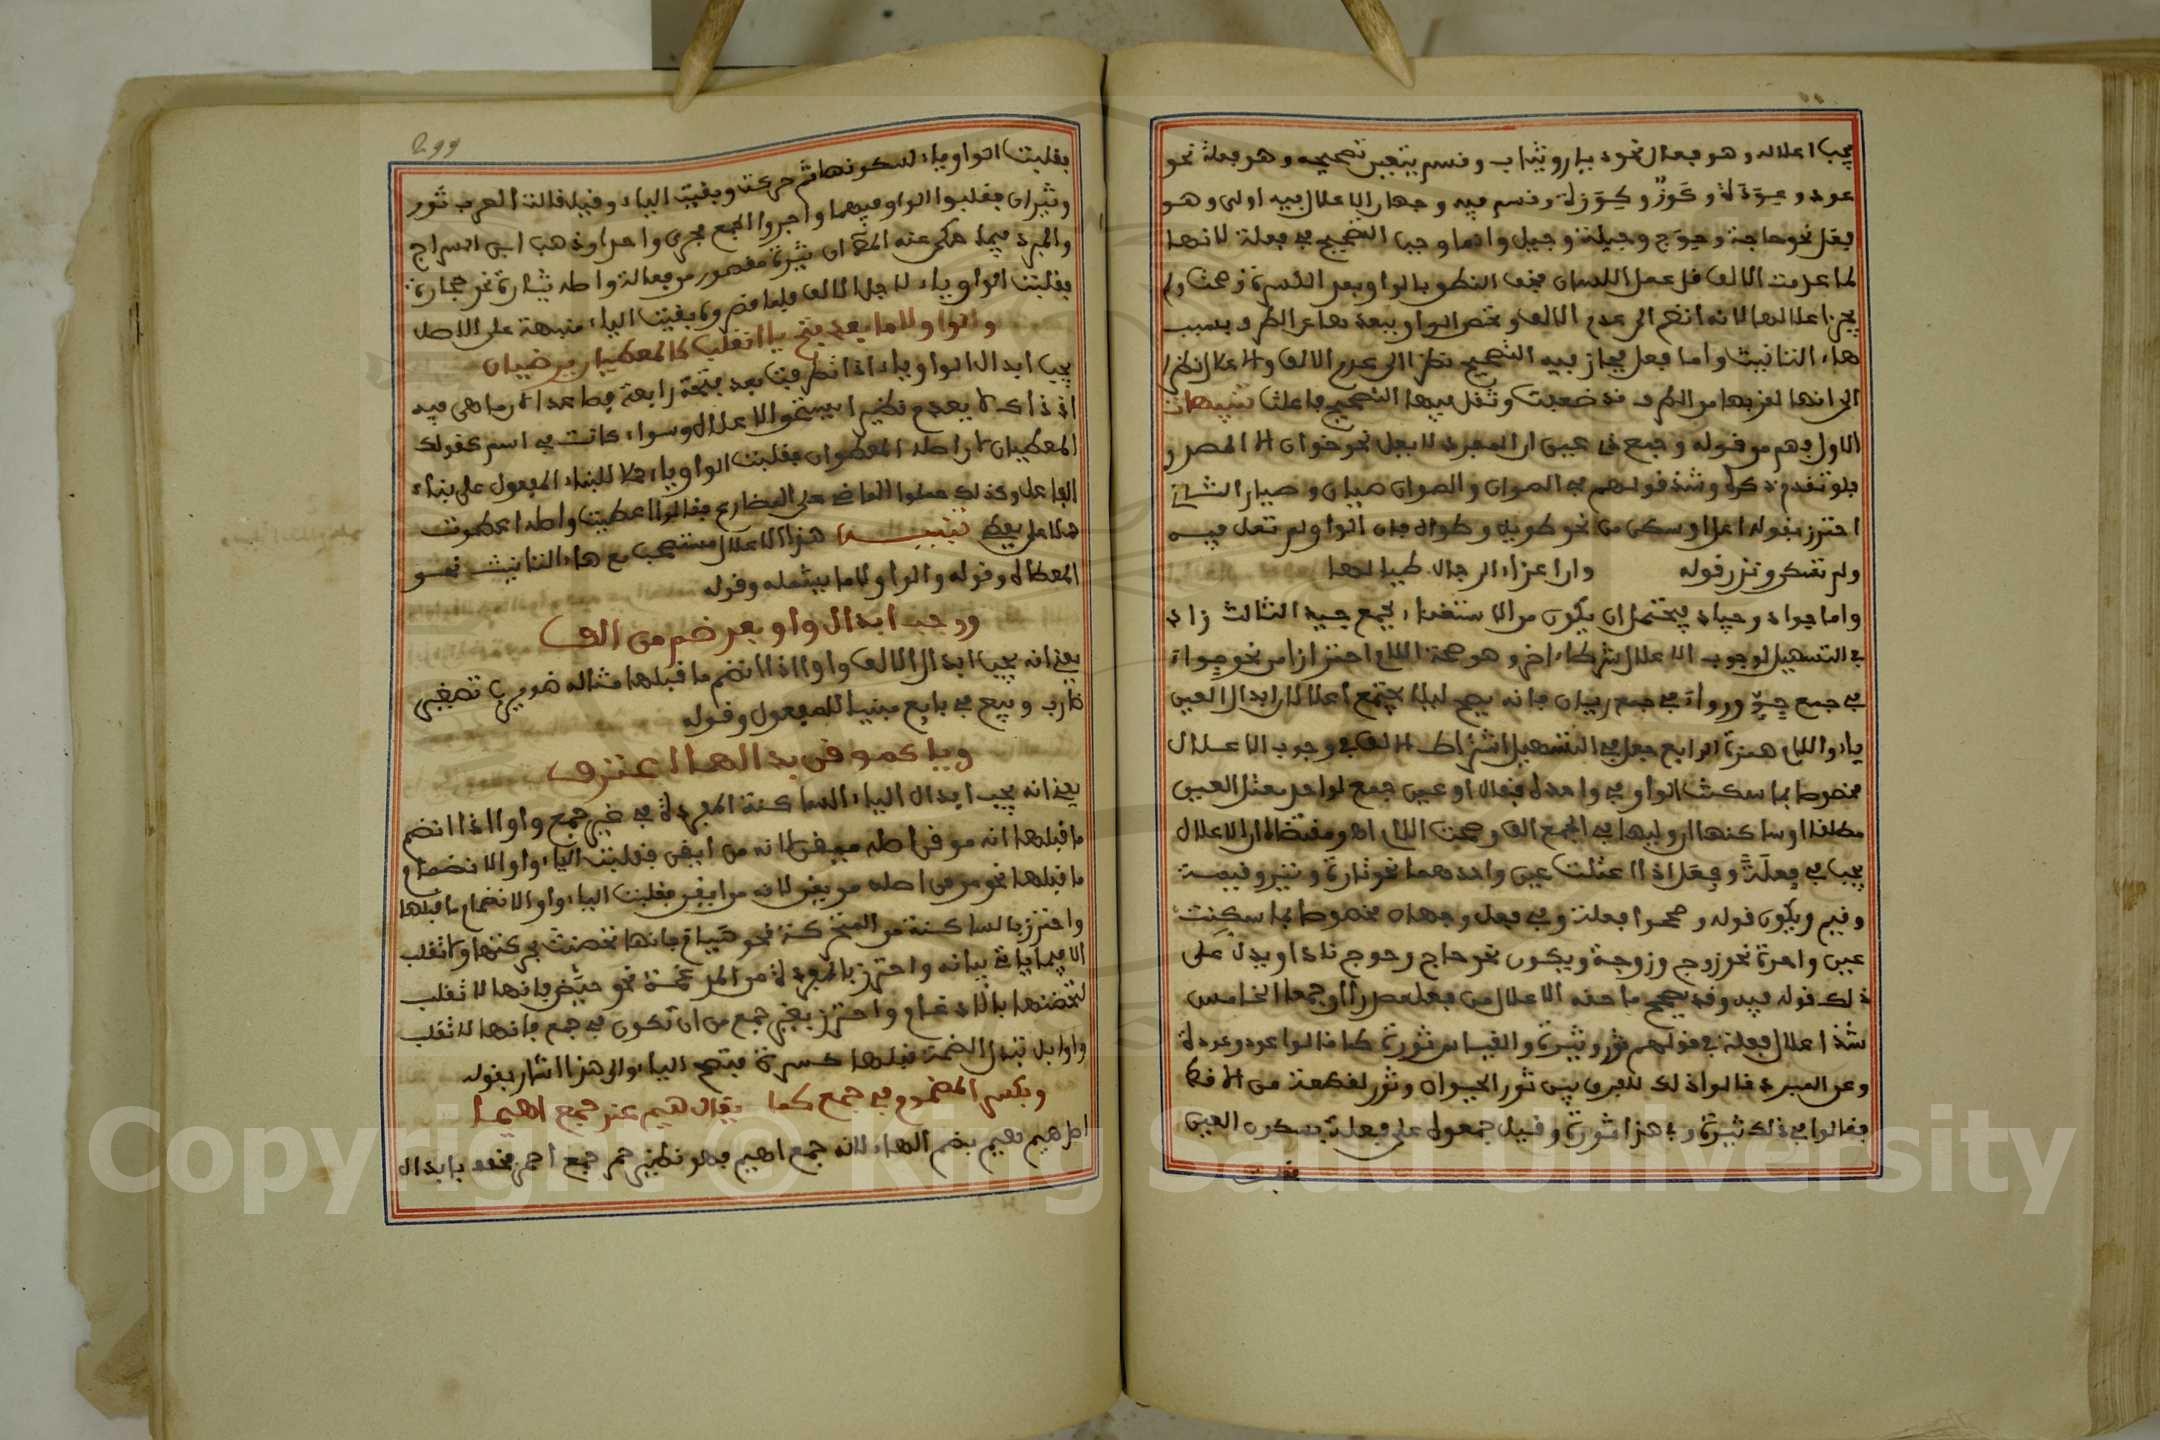 يجب اعلاله وهو فعال نحو ديار وثياب وقسم يتعين تصحيحه وهو فعلة نحو
عود وعودة وكوز وكوزة وقسم فيه وجهان الاعلال فيه اولى وهو
فعل نحو حاجة وحوج وحيلة وحيل وانما وجب التصحيح في فعلة لانها
لما عدمت الالف قل عمل اللسان فخف النطق بالواو بعد الكسرة فصحت ولم
يجز اعلالها لانه انضم الى عدم الالف وتحصن الواو ببعدها عن الطرف بسبب
هاء التانيث واما فعل فجاز فيه التصحيح نظرا الى عدم الالف والاعلال نظرا
الى انها لقربها من الطرف قد ضعفت وثقل فيها التصحيح فاعلت تنبيهات
الاول فهم من قوله وجمع ذي عين ان المفرد لا يعل نحو خوان الا المصدر
فلو تقدم ذكره وشذ قولهم في الصوان والصوان صيان وصيار الثاني
احترز بقوله اعل او سكن من نحو طويل وطوال فان الواو لم تعل فيه
ولم تسكن وندر قوله وان اعزاء الرجال طيالها
واما جواد وجياد فيحتمل ان يكون من الاستغناء بجمع جيد الثالث زاد
في التسهيل لوجوب الاعلال شرطا اخر وهو صحة اللام احترازا من نحو جواء
في جمع جو ورواء في جمع ريان فانه يصح لئلا يجتمع اعلالان ابدال العين
ياء واللام همزة الرابع جعل في التسهيل اشتراط الالف في وجوب الاعلال
مخصوصا بما سكنت الواو في واحده فقال او عين جمع لواحد معتل العين
مطلقا او ساكنها ان وليها في الجمع الف وصحت اللام اه ومقتضاه ان الاعلال
يجب في فعلة وفعل اذا اعتلت عين واحدهما نحو تارة وتير وقيمة
وقيم ويكون قوله وصححوا فعلة وفي فعل وجهان مخصوصا بما سكنت
عين واحدة نحو زوج وزوجة ويكون نحو حاج وحوج شاذا ويدل على
ذلك قوله فيه وقد يصحح ما حقه الاعلال من فعل مصدرا او جمعا الخامس
شذ اعلال فعلة في قولهم ثور وثيرة والقياس ثورة كما قالوا عود وعودة
وعن المبرد قالوا ذلك للفرق بين ثور الحيوان وثور لقطعة من الاقط
فقالوا في ذلك ثيرة وفي هذا ثورة وقيل جمعوه على فعلة بسكون العين
فقلبت
299
فقلبت الواو ياء لسكونها ثم حركت وبقيت الياء وقيل قالت العرب ثور
وثيران فقلبوا الواو فيهما واجروا الجمع مجرى واحدا وذهب ابن السراج
والمبرد فيما حكى عنه الى ان ثيرة مقصور من فعالة واصله ثيارة نحو حجارة
فقلبت الواو ياء لاجل الالف فلما قصروه بقيت الياء منبهة على الاصل
والواو لاما بعد فتح يا انقلب كالمعطيان يرضيان
يجب ابدال الواو ياء اذا تطرفت بعد فتحة رابعة فصاعدا لان ما هي فيه
اذ ذاك لا يعدم نظيرا يستحق الاعلال وسواء كانت في اسم كقولك
المعطيان اذ اصله المعطوان فقلبت الواو ياء حملا لبناء المفعول على بناء
الفاعل وكذلك حملوا الماضي على المضارع فقالوا اعطيت واصله اعطوت
حملا على يعطي تنبيه هذا الاعلال مستصحب مع هاء التانيث نحو
المعطاة وقوله والواو لاما يشمله وقوله
ووجب ابدال واو بعد ضم من الف
يعني انه يجب ابدال الالف واوا اذا انضم ما قبلها مثاله ضويرب تصغير
ضارب وبويع في بايع مبنيا للمفعول وقوله
ويا كموقن بذا لها اعترف
يعني انه يجب ابدال الياء الساكنة المفردة في غير جمع واوا اذا انضم
ما قبلها نحو موقن اصله ميقن لانه من ايقن فقلبت الياء واوا لانضمام
ما قبلها نحو موقن اصله ميقن لانه من ايقن فقلبت الياء واوا لانضمام ما قبلها
واحترز بالساكنة من المتحركة نحو هيام فانها تحصنت بحركتها ولا تقلب
الا فيما ياتي بيانه واحترز بالمفردة من المدغمة نحو حيض فانها لا تقلب
لتحصنها بالادغام واحترز بغير جمع من ان تكون في جمع فانها لا تقلب
واوا بل تبدل الضمة قبلها كسرة فتصح الياء والى هذا اشار بقوله
ويكسر المضموم في جمع كما يقال هيم عند جمع اهيما
اصل هيم هيم بضم الهاء لانه جمع اهيم فهو نظير حمر جمع احمر فخفف بابدال
Copyright © King Saud University